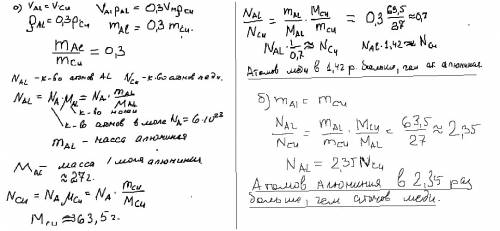 а) V_Al = V_Cu
V_Al ρ_Al = 0,3 V_Cu ρ_Cu
ρ_Al = 0,3 ρ_Cu
m_Al = 0,3 m_Cu.
m_Al / m_Cu = 0,3
N_AL - к-во атомов AL N_Cu - к-во атомов меди.
N_AL = N_A μ_AL = N_A · m_Al / M_AL
к-во молей
к-в атомов в моле N_A = 6·10²³
m_AL - масса алюминия
M_AL - масса 1 моля алюминия
≈ 27г.
N_Cu = N_A μ_Cu = N_A · m_Cu / M_Cu
M_Cu ≈ 63,5 г.
N_AL / N_Cu = m_AL / M_AL · M_Cu / m_Cu = 0,3 63,5 / 27 ≈ 0,7
N_AL · 1 / 0,7 ≈ N_Cu N_AL · 1,42 ≈ N_Cu
Атомов меди в 1,42 р. больше, чем ат алюминия.
б) m_Al = m_Cu
N_AL / N_Cu = m_AL / m_Cu · M_Cu / M_AL = 63,5 / 27 ≈ 2,35
N_AL = 2,35 N_Cu
Атомов алюминия в 2,35 раз
больше, чем атомов меди.